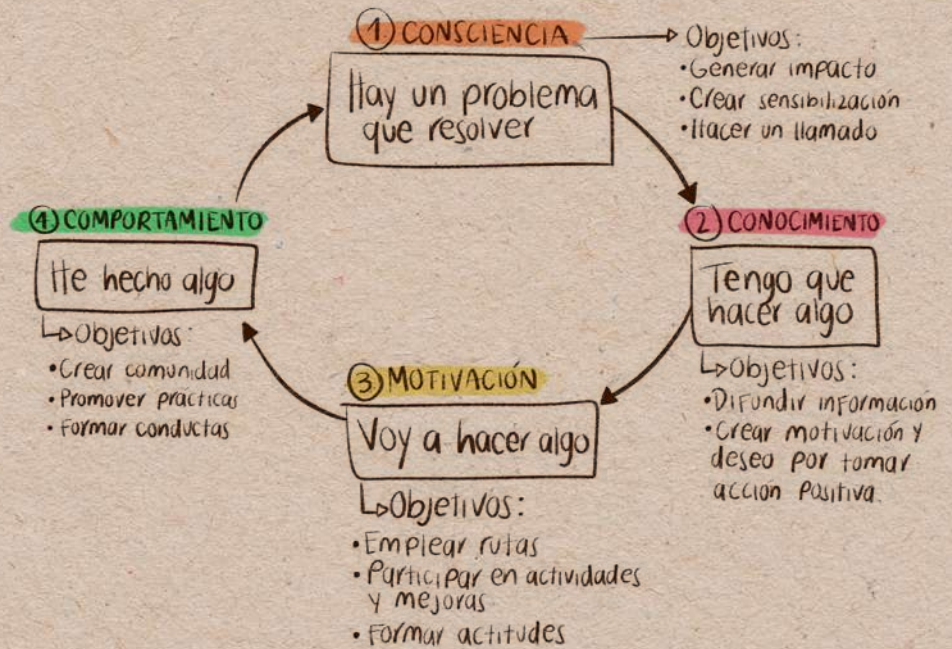 ① CONSCIENCIA
Hay un problema
que resolver
Objetivos:
•Generar impacto
•Crear sensibilización
•Hacer un llamado
② CONOCIMIENTO
Tengo que
hacer algo
Objetivos:
•Difundir información
•Crear motivación y
deseo por tomar
acción positiva.
③ MOTIVACIÓN
Voy a hacer algo
Objetivos:
•Emplear rutas
•Participar en actividades
y mejoras
•Formar actitudes
④ COMPORTAMIENTO
He hecho algo
Objetivos:
•Crear comunidad
•Promover practicas
•Formar conductas